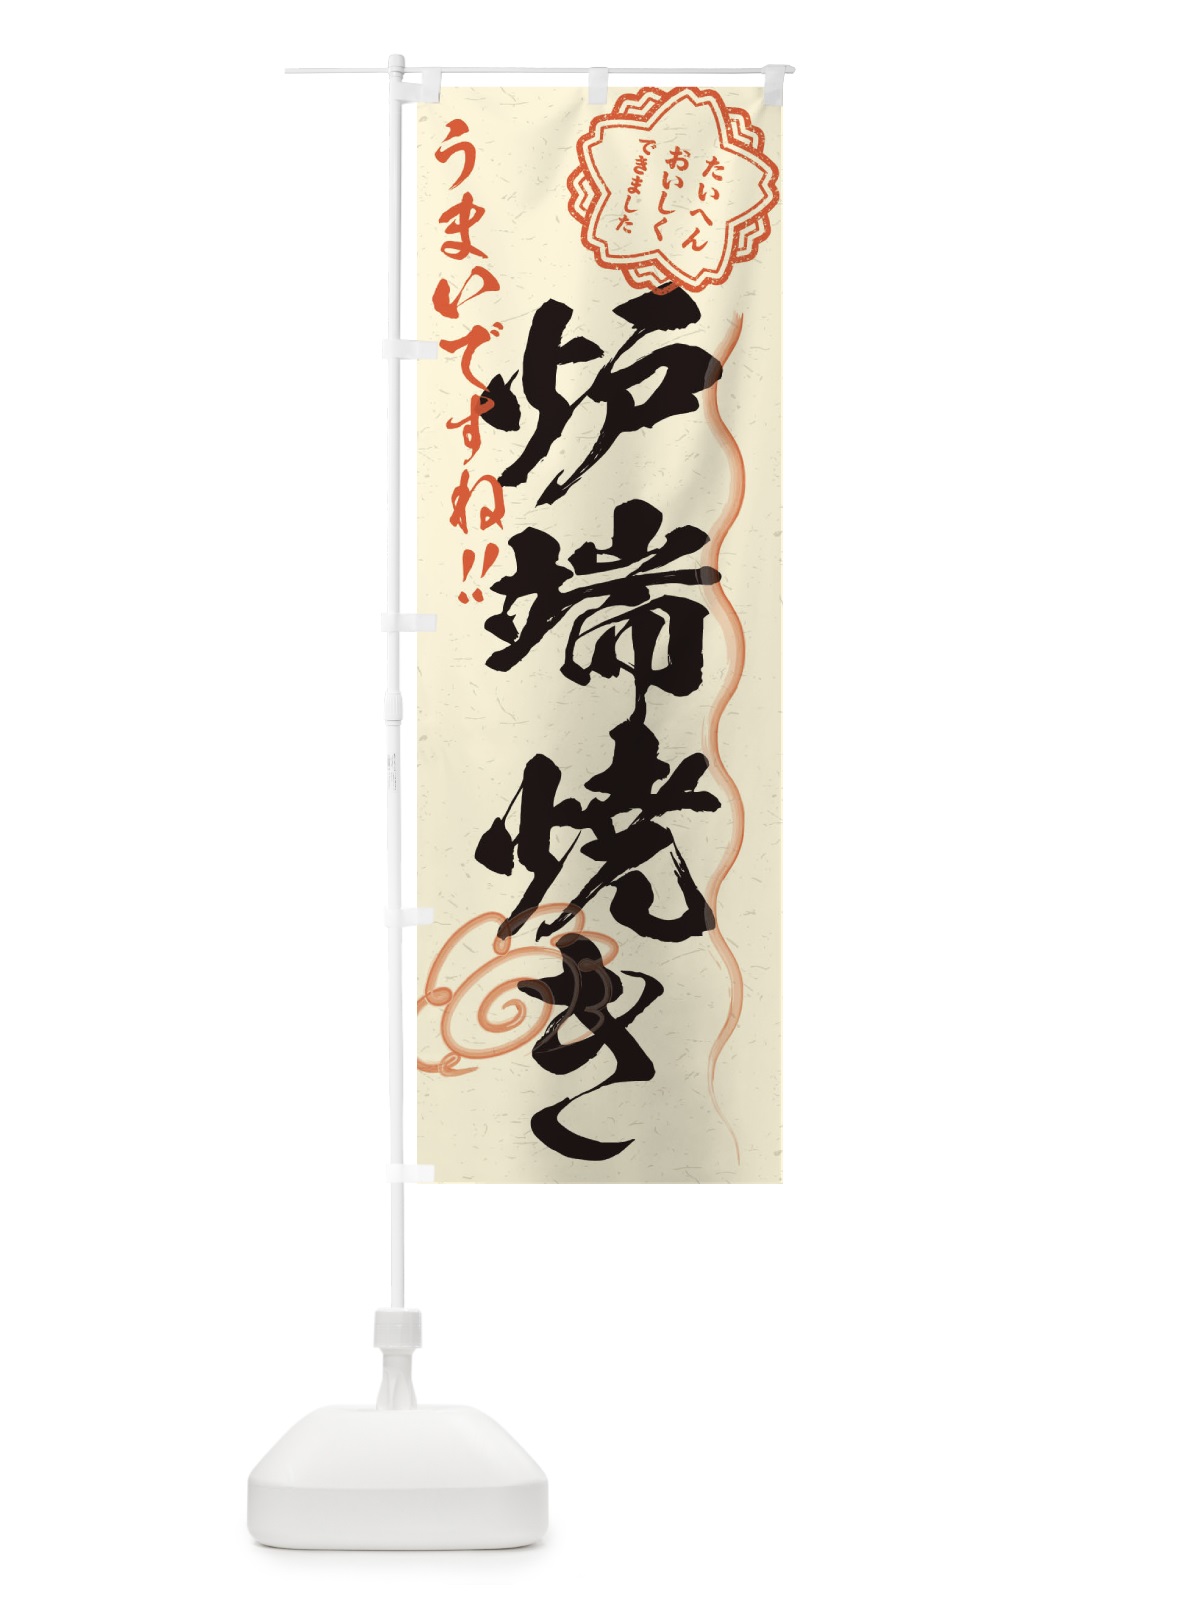 たいへん
おいしく
できました
炉端焼き
うまいですね!!